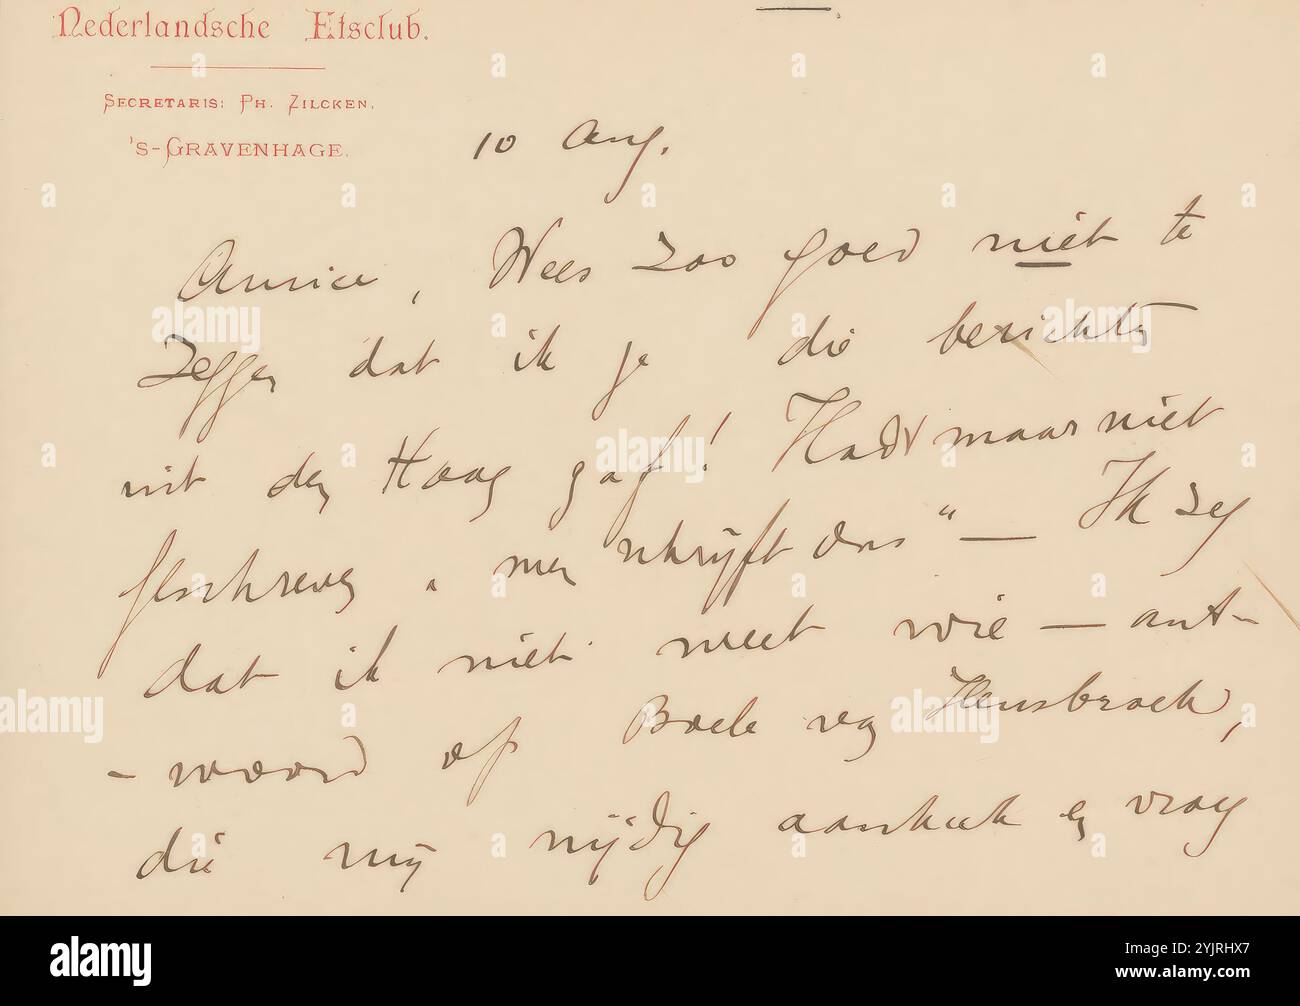 Nederlandsche Etsclub.
Secretaris: Ph. Zilcken.
's-Gravenhage.
10 Aug.
Amice, Wees zoo goed niet te
zeggen dat ik je die berichten
uit den Haag gaf! Hadt maar niet
geschreven „men schrijft ons" — Ik zeg
dat ik niet weet wie — ant-
- woord op Boele van Hensbroek,
die mij nijdig aankeek en vroeg
alamy
Image ID: 2YJRHX7
www.alamy.com